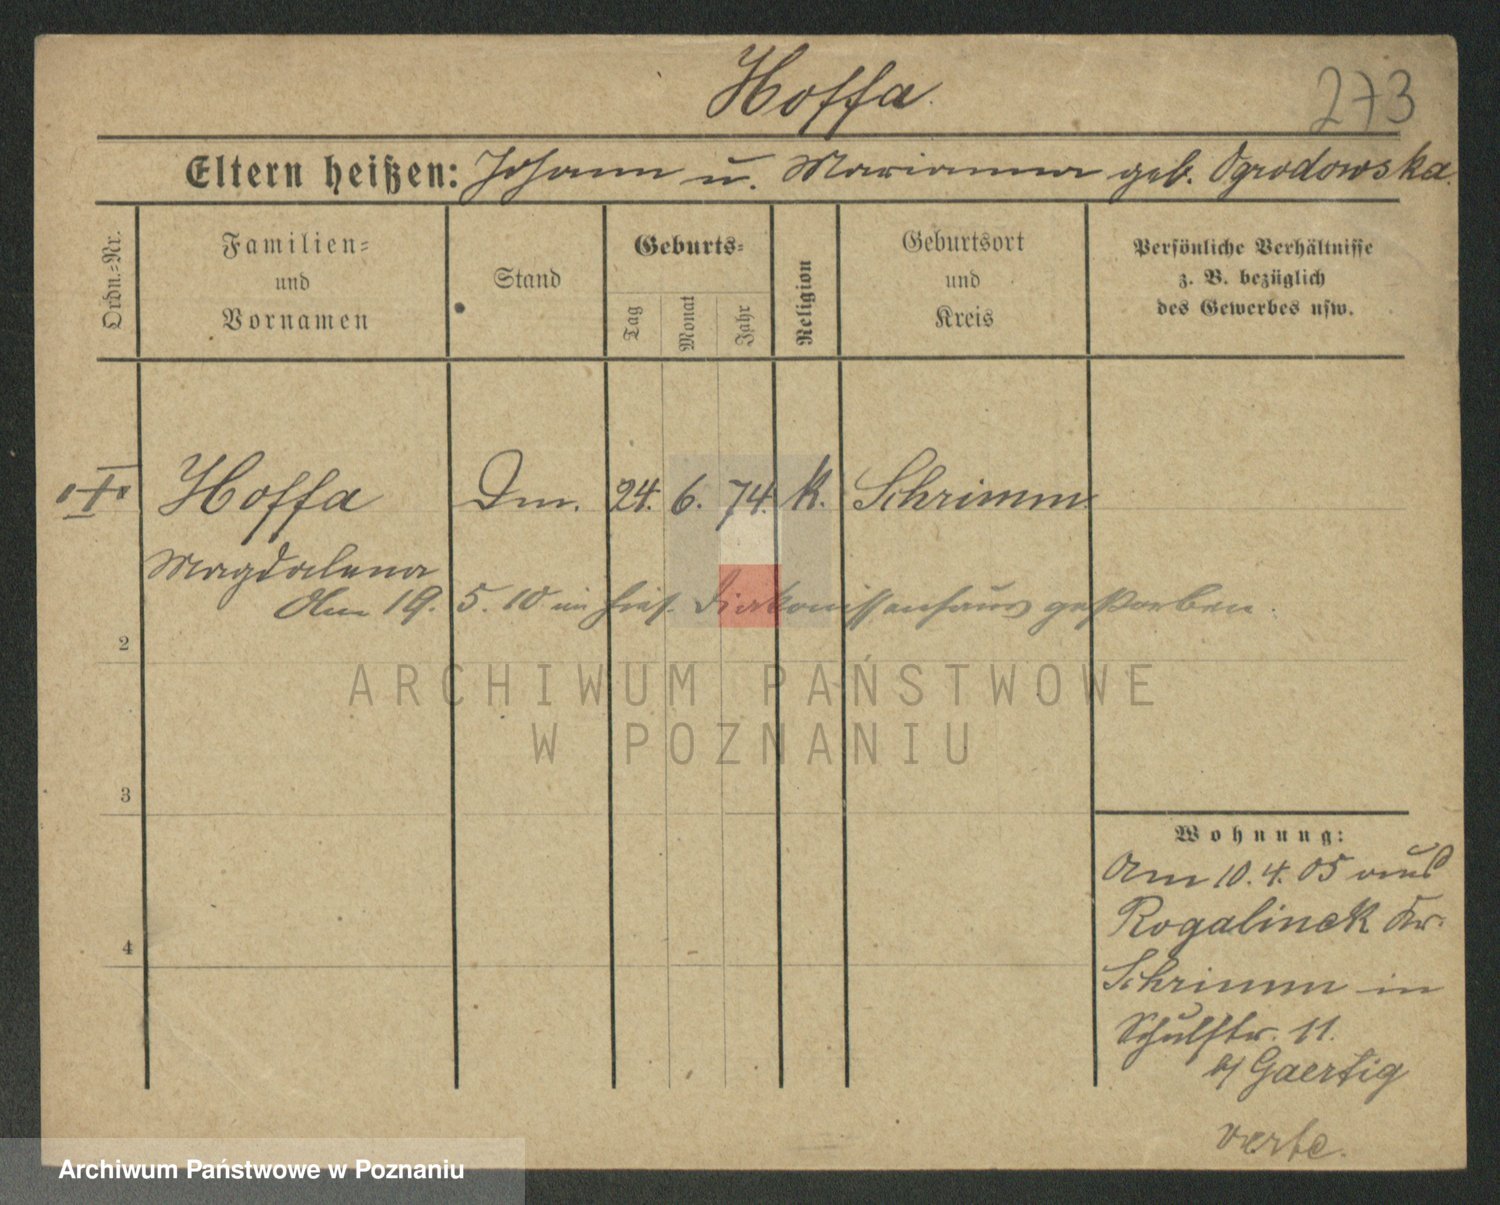 Hoffa.
273
Eltern heißen: Johann u. Marianna geb. Ogrodowska.
Ordn.=Nr.
Familien=
und
Vornamen
Stand
Geburts=
Tag
Monat
Jahr
Religion
Geburtsort
und
Kreis
Persönliche Verhältnisse
z. B. bezüglich
des Gewerbes usw.
Hoffa Dm. 24. 6. 74. k. Schrimm.
Magdalena
Am 19. 5. 10 im hies. Diakonissenhaus gestorben.
2
3
4
ARCHIWUM PAŃSTWOWE
W POZNANIU
Wohnung:
Am 10.4.05 aus
Rogalinek Kr.
Schrimm in
Schulstr. 11.
b/ Gaertig
verte.
Archiwum Państwowe w Poznaniu